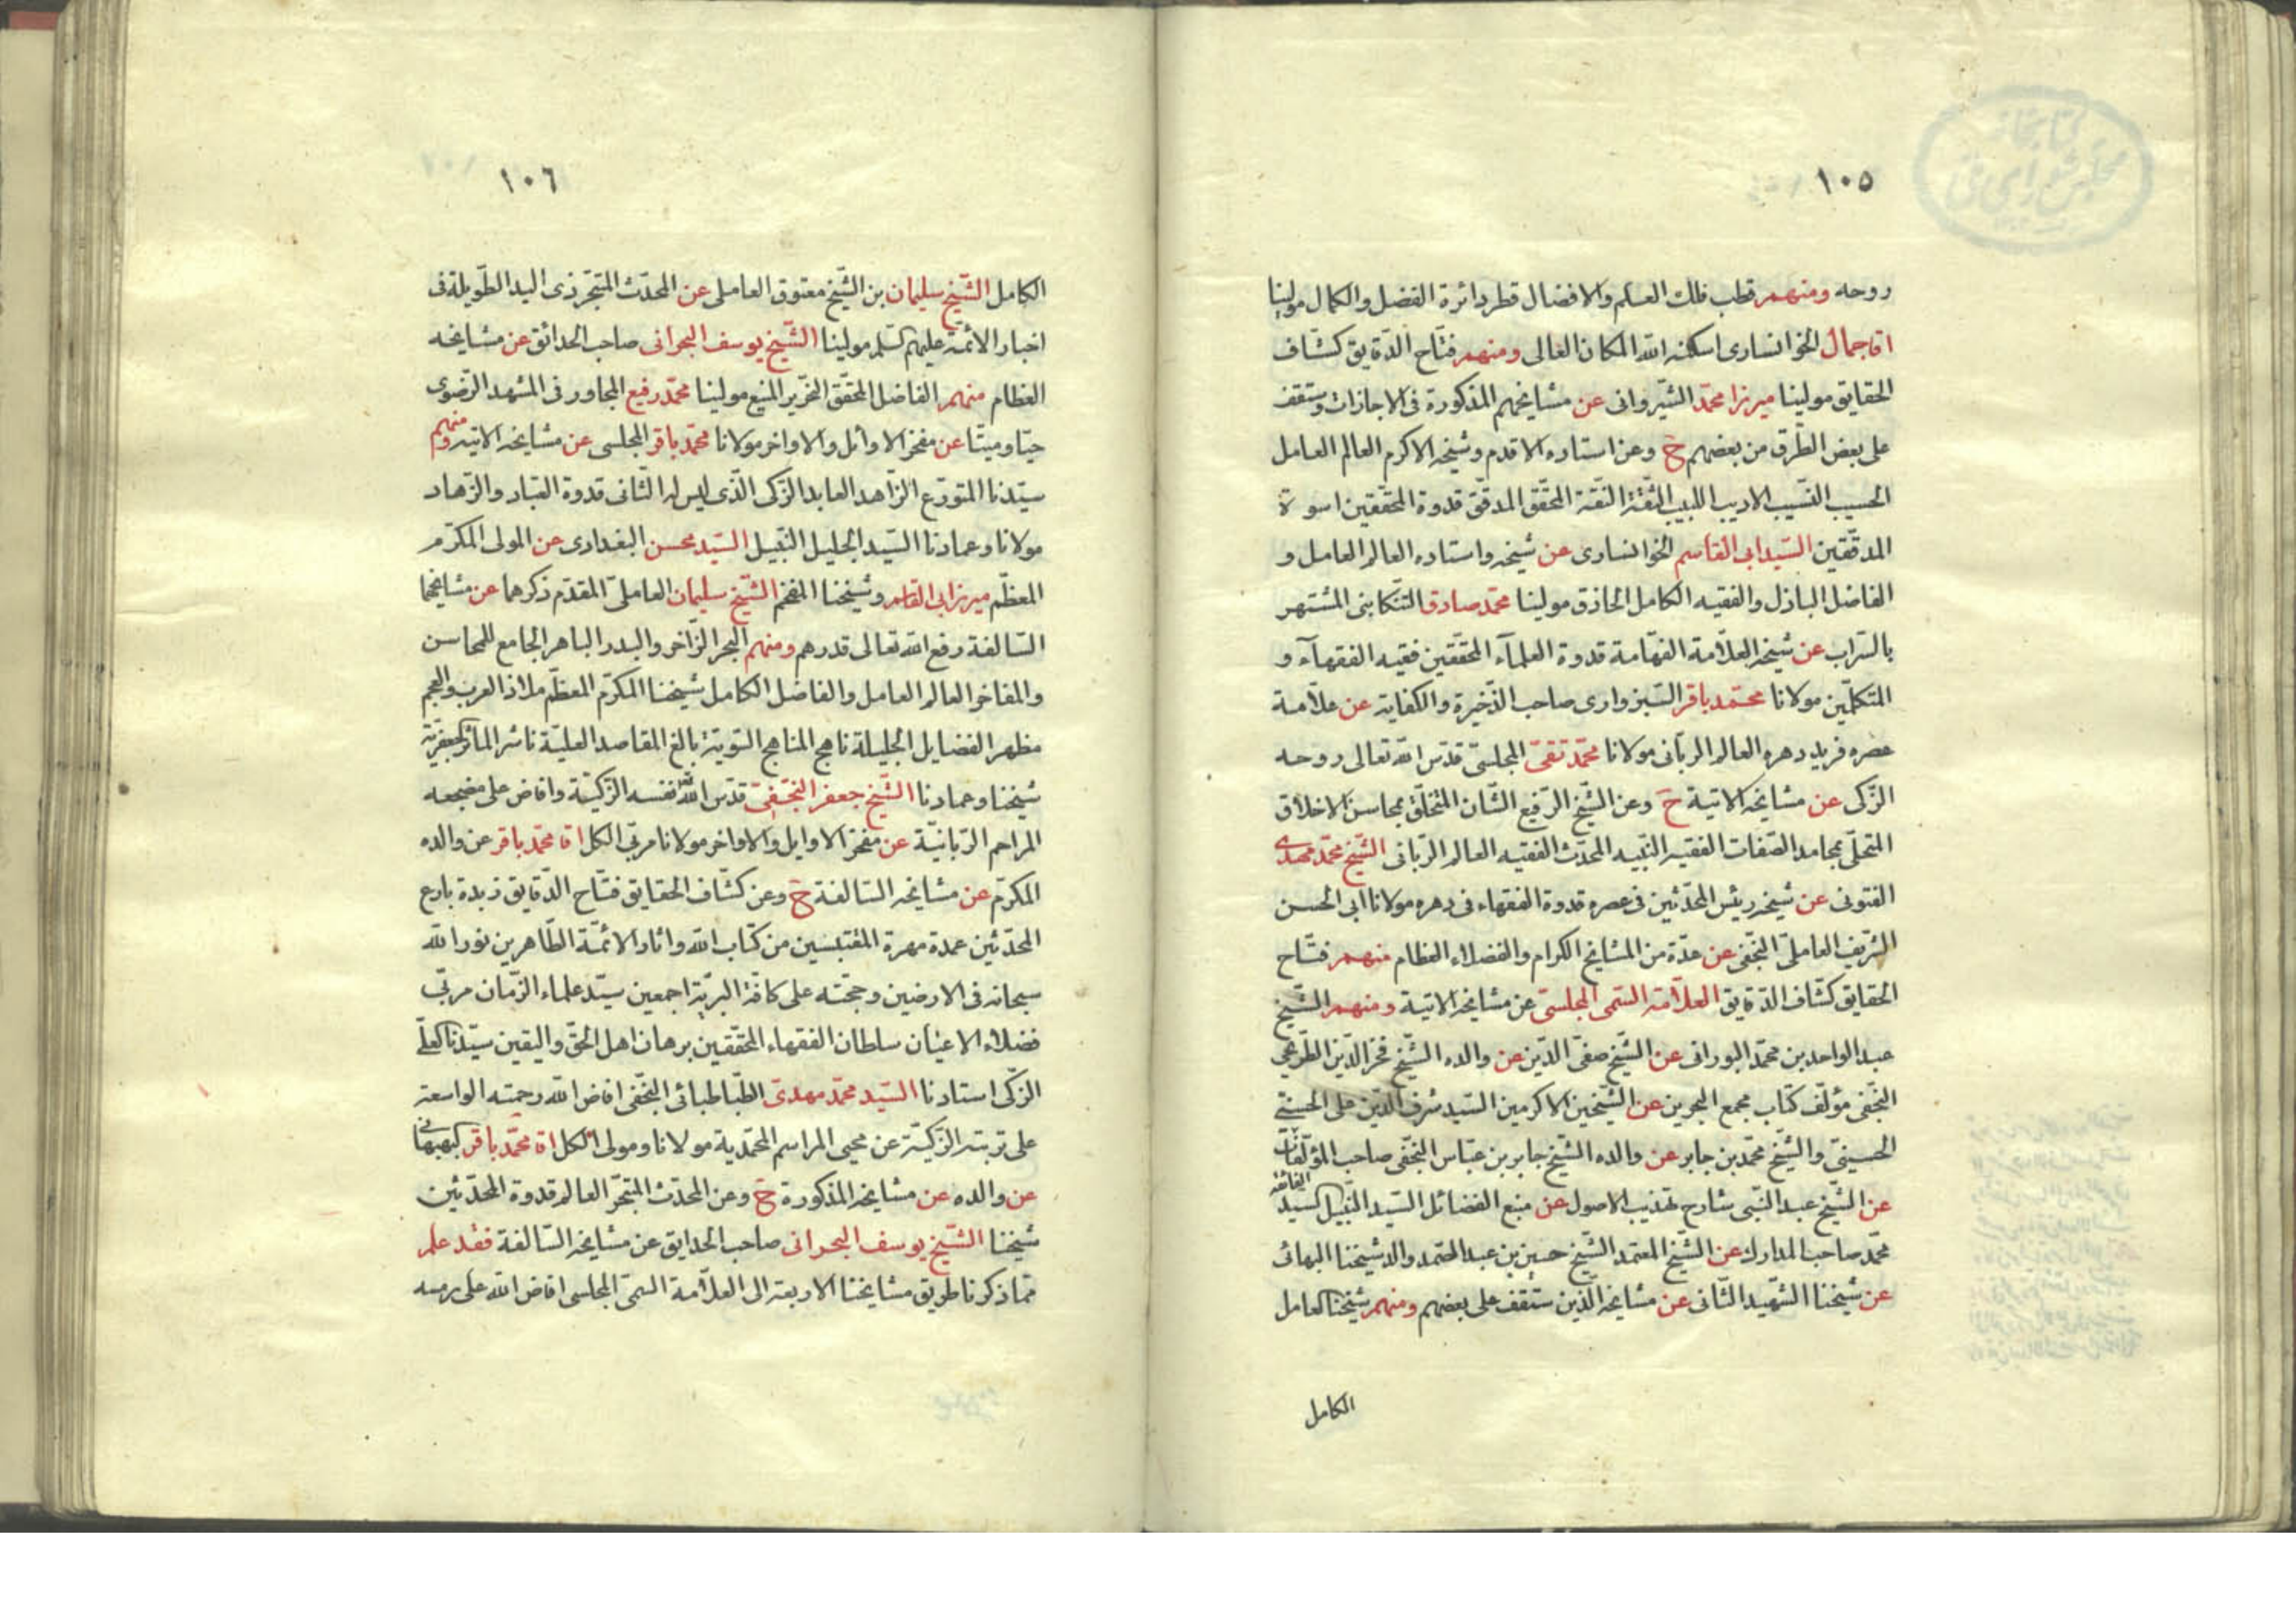 كتابخانه
مجلس شورای ملی
١٠٥
روحه ومنهم قطب فلك العلم والافضال قطر دائرة الفضل والكمال مولينا
اقا جمال الخوانسارى اسكنه الله المكان العالى ومنهم فتّاح الدقايق كشاف
الحقايق مولينا ميرزا محمّد الشيروانى عن مشايخهم المذكورة فى الاجازات وستقف
على بعض الطرق من بعضهم ح وعن استاده الاقدم وشيخه الاكرم العالم العامل
الحسيب النسيب الاديب اللبيب الثقة النقة المحقّق المدقّق قدوة المحققين اسوة
المدقّقين السيد ابى القاسم الخوانسارى عن شيخه واستاده العالم العامل و
الفاضل الباذل والفقيه الكامل الحاذق مولينا محمّد صادق التنكابنى المشتهر
بالسّراب عن شيخه العلّامة الفهّامة قدوة العلمآء المحققين فقيه الفقهآء و
المتكلّمين مولانا محمّد باقر السبزوارى صاحب الذّخيرة والكفاية عن علّامة
عصره فريد دهره العالم الربّانى مولانا محمّد تقىّ المجلسىّ قدّس الله تعالى روحه
الزّكى عن مشايخه الاتية ح وعن الشّيخ الرّفيع الشّان المتخلّق بمحاسن الاخلاق
المتحلّى بمحامد الصّفات الفقيه النّبيه المحدّث الفقيه العالم الرّبانى الشّيخ محمّد مهدى
الفتونى عن شيخه رئيس المحدّثين فى عصره قدوة الفقهاء فى دهره مولانا ابى الحسن
الشّريف العاملىّ النّجفى عن عدّة من المشايخ الكرام والفضلاء العظام منهم فتّاح
الحقايق كشّاف الدّقايق العلّامة السّمى المجلسىّ عن مشايخه الاتية ومنهم الشّيخ
عبد الواحد بن محمّد البورانى عن الشّيخ صفىّ الدّين عن والده الشّيخ فخر الدّين الطّريحى
النّجفى مؤلّف كتاب مجمع البحرين عن الشّيخين الاكرمين السّيد شرف الدّين على الحسنىّ
الحسينىّ والشّيخ محمّد بن جابر عن والده الشّيخ جابر بن عبّاس النّجفى صاحب المؤلّفات الفائقه
عن الشّيخ عبد النّبى شارح تهذيب الاصول عن منبع الفضائل السّيد النّبيل السيد
محمّد صاحب المدارك عن الشّيخ المعتمد الشّيخ حسين بن عبد الصّمد والد شيخنا البهائى
عن شيخنا الشّهيد الثّانى عن مشايخه الّذين ستقف على بعضهم ومنهم شيخنا العامل
الكامل
١٠٦
الكامل الشّيخ سليمان بن الشّيخ معتوق العاملى عن المحدّث المتبحّر ذى اليد الطّويلة فى
اخبار الائمّة عليهم السلم مولينا الشّيخ يوسف البحرانى صاحب الحدائق عن مشايخه
العظام منهم الفاضل المحقّق النّحرير المنيع مولينا محمّد رفيع المجاور فى المشهد الرّضوى
حيّا وميتّا عن مفخر الاوائل والاواخر مولانا محمّد باقر المجلسى عن مشايخه الاتية ومنهم
سيّدنا المتورّع الزّاهد العابد الزّكى الّذى ليس له الثّانى قدوة العبّاد والزّهاد
مولانا وعمادنا السّيد الجليل النّبيل السّيد محسن البغدادى عن المولى المكرّم
المعظّم ميرزا ابى القاسم وشيخنا المفخم الشّيخ سليمان العاملىّ المقدّم ذكرهما عن مشايخهما
السّالفة رفع الله تعالى قدرهم ومنهم البحر الزّاخر والبدر الباهر الجامع للمحاسن
والمفاخر العالم العامل والفاضل الكامل شيخنا المكرّم المعظّم ملاذ العرب والعجم
مظهر الفضايل الجليلة ناهج المناهج السّوية بالغ المقاصد العليّة ناشر الماثر الجعفريّة
شيخنا وعمادنا الشّيخ جعفر النّجفىّ قدّس الله نفسه الزكيّة وافاض على مضجعه
المراحم الرّبانيّة عن مفخر الاوايل والاواخر مولانا مربّى الكل اقا محمّد باقر عن والده
المكرّم عن مشايخه السّالفة ح وعن كشّاف الحقايق فتّاح الدّقايق زبدة بارع
المحدّثين عمدة مهرة المقتبسين من كتاب الله واثار الائمّة الطّاهرين نور الله
سبحانه فى الارضين وحجته على كافة البريّة اجمعين سيّد علماء الزّمان مربّى
فضلاء الاعيان سلطان الفقهاء المحقّقين برهان اهل الحقّ واليقين سيّدنا العلىّ
الزّكى استادنا السّيد محمّد مهدىّ الطّباطبائى النّجفى افاض الله رحمته الواسعة
على تربته الزّكيّة عن محيى المراسم المحمّدية مولانا ومولى الكل اقا محمّد باقر البهبهانى
عن والده عن مشايخه المذكورة ح وعن المحدّث المتبحّر العالم قدوة المحدّثين
شيخنا الشّيخ يوسف البحرانى صاحب الحدايق عن مشايخه السّالفة فقد علم
ممّا ذكرنا طريق مشايخنا الاربعة الى العلّامة السّمىّ المجلسى افاض الله على رمسه